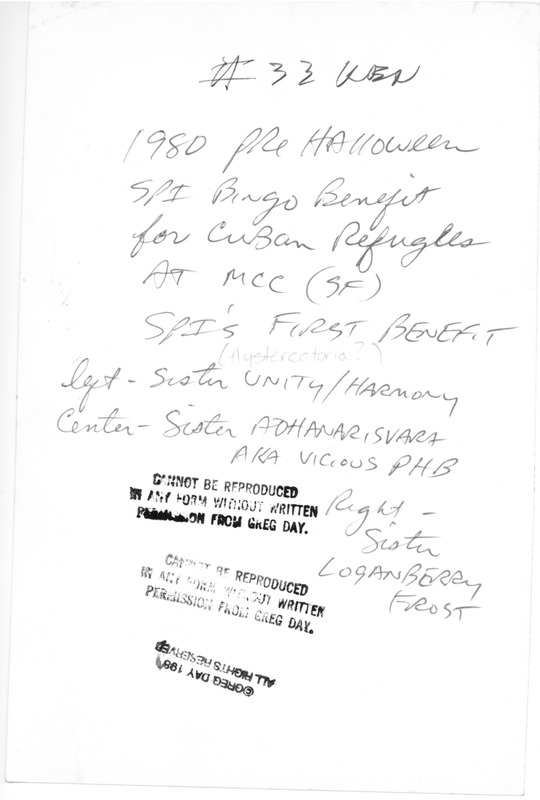 # 33 WBN
1980 PRe HAlloween
SPI Bingo Benefit
for CuBan Refugees
AT MCC (SF)
SPI's FIRST BENEFIT
(Hysterectoria?)
left - Sister UNITY/HARMONY
Center - Sister ADHANARISVARA
AKA VICIOUS PHB
Right -
Sister
LOGANBERRY
FROST
CANNOT BE REPRODUCED
IN ANY FORM WITHOUT WRITTEN
PERMISSION FROM GREG DAY.
CANNOT BE REPRODUCED
IN ANY FORM WITHOUT WRITTEN
PERMISSION FROM GREG DAY.
©GREG DAY
ALL RIGHTS RESERVED